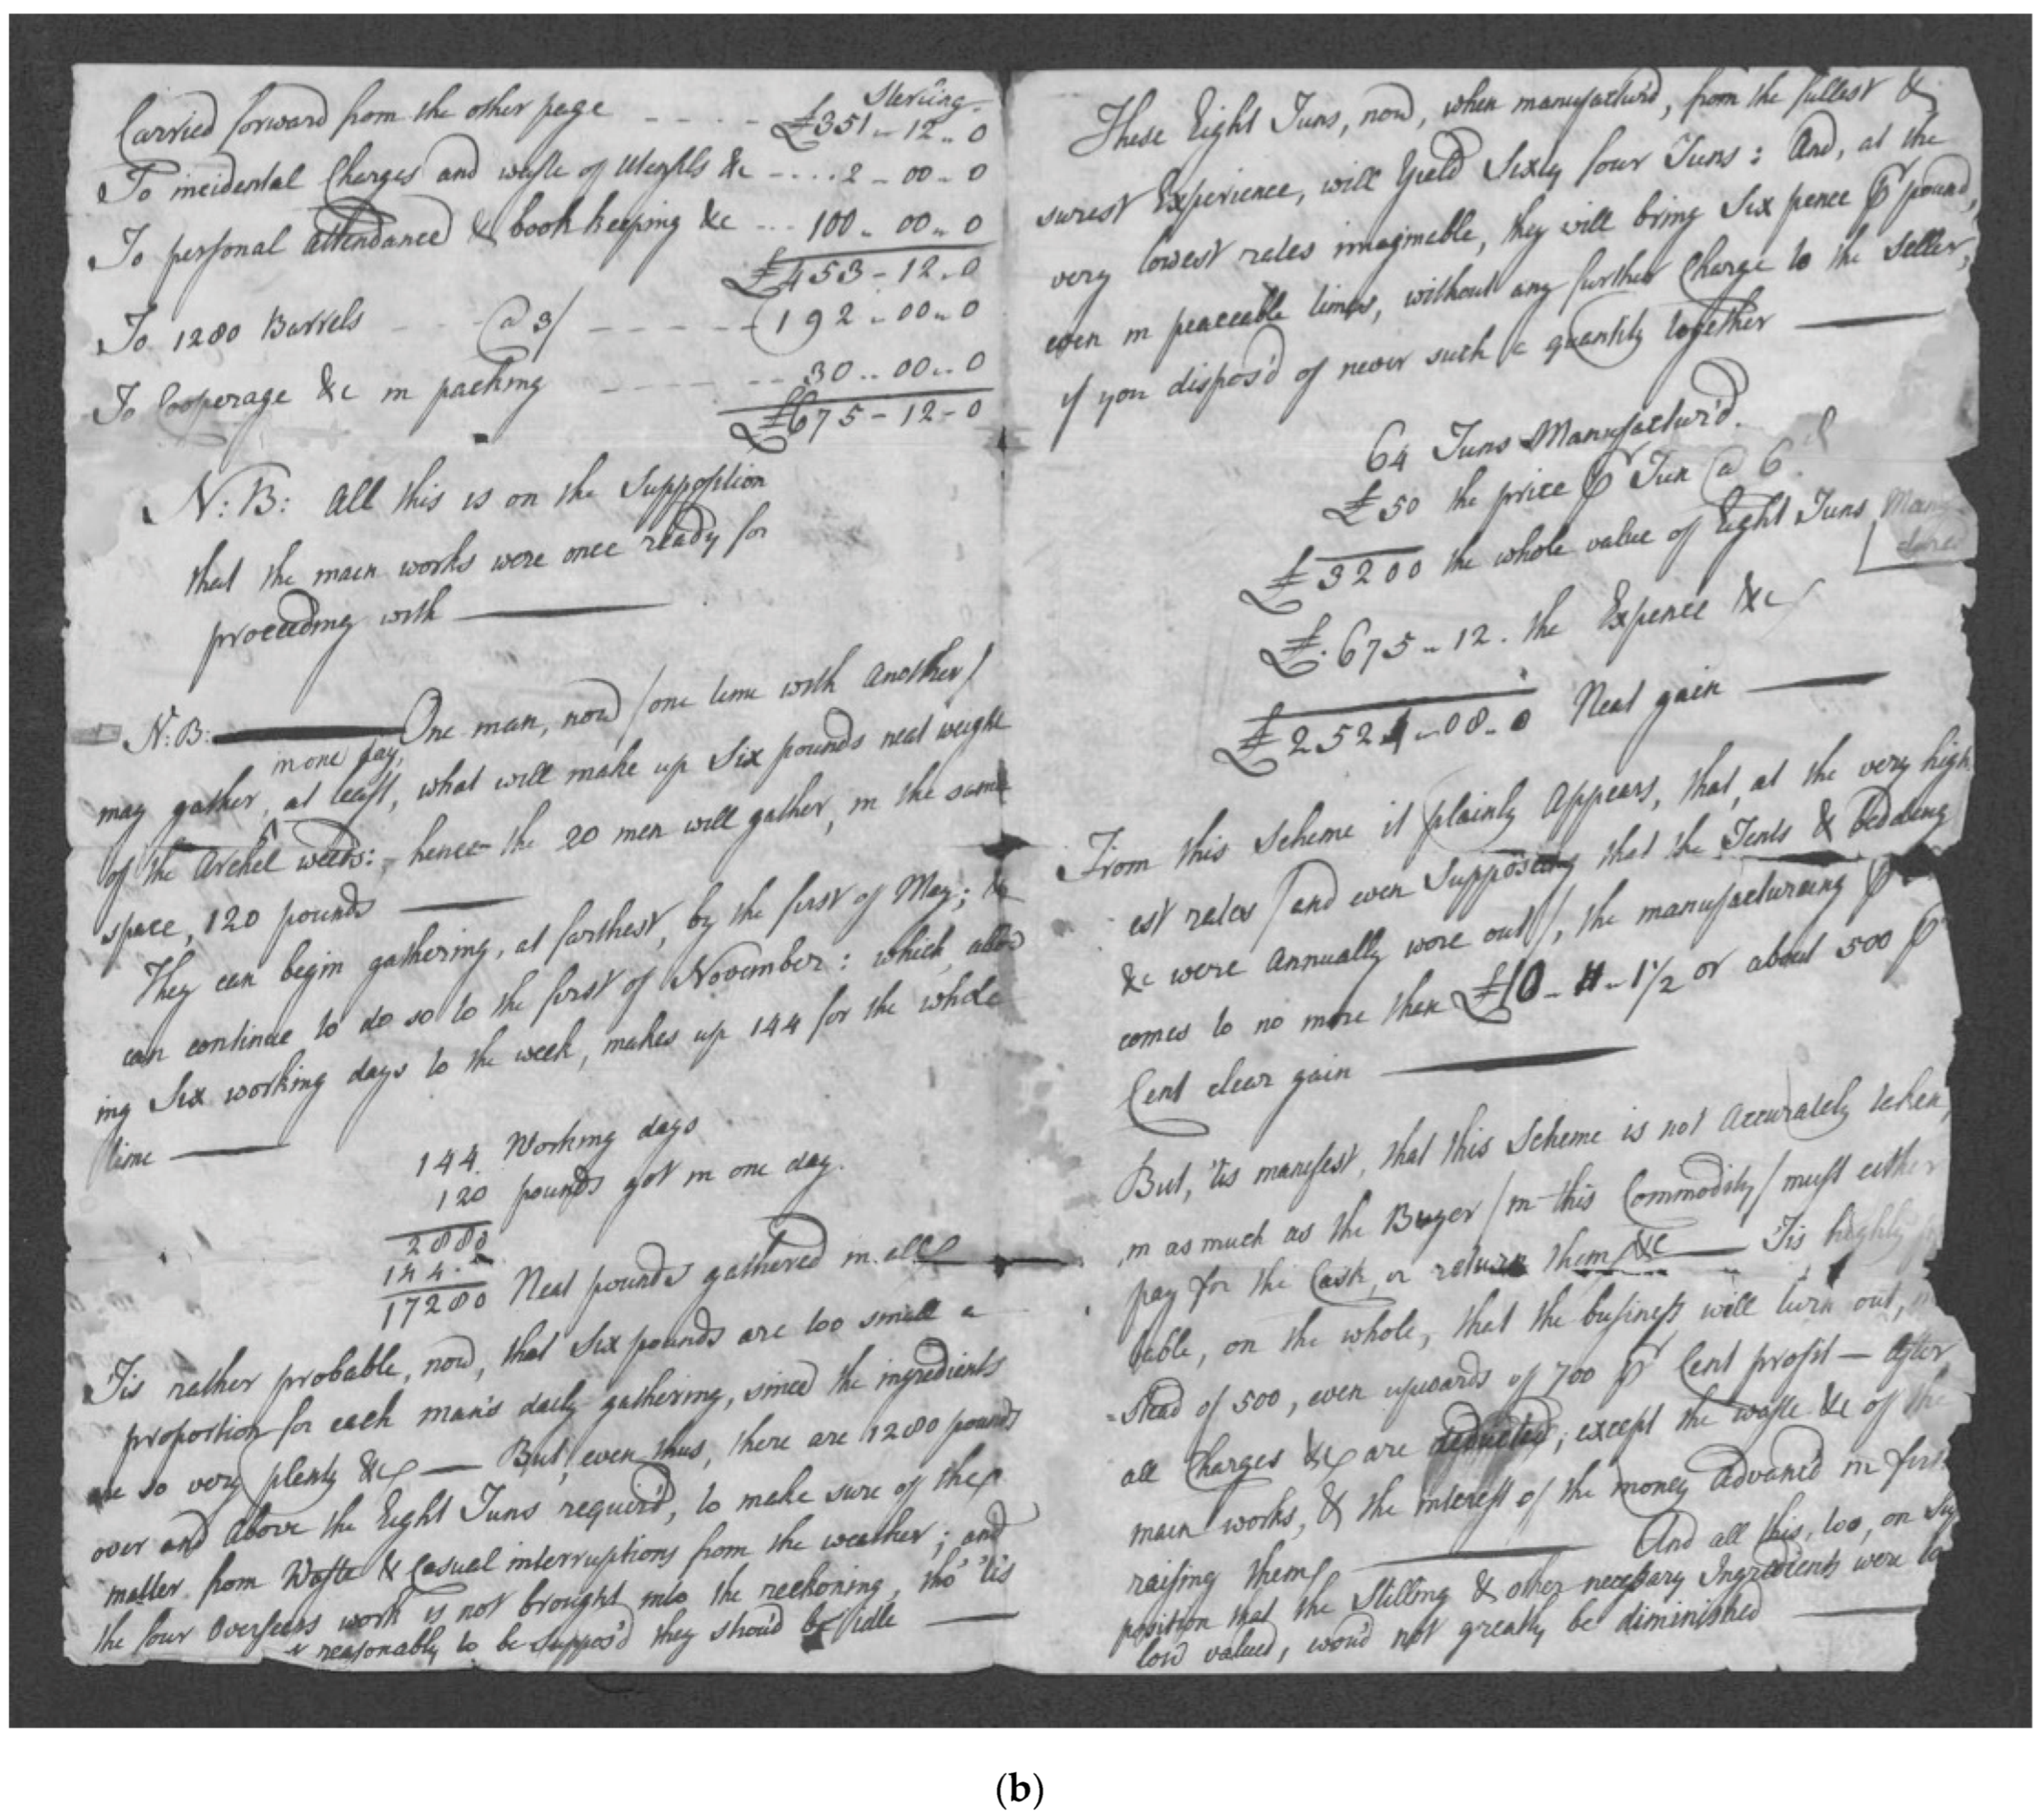 Sterling
Carried forward from the other page - - - - £351 - 12 .. 0
To incidental Charges and waste of Utensils &c - .... 2 - 00 - 0
To personal attendance & book keeping &c ... 100 .. 00 .. 0
£453 - 12 .. 0
To 1280 Barrels - - - @ 3/ - - - - - 192 .. 00 .. 0
To Cooperage &c in packing - - - - - 30 .. 00 .. 0
£675 - 12 - 0
N: B: All this is on the Supposition
that the main works were once ready for
proceeding with ——
N: B: —— One man, now / one time with another /
in one day,
may gather, at least, what will make up Six pounds neat weight
of the Archel weeds: hence the 20 men will gather, in the same
space, 120 pounds ——
They can begin gathering, at farthest, by the first of May; &
can continue to do so to the first of November: which, allow
ing Six working days to the week, makes up 144 for the whole
time ——
144 Working days
120 pounds got in one day.
2880
144..
17280 Neat pounds gathered in all
Tis rather probable, now, that Six pounds are too small a
proportion for each man's daily gathering, since the ingredients
are so very plenty &c — But, even thus, there are 1280 pounds
over and above the Eight Tuns requir'd, to make sure of the
matter from Waste & Casual interruptions from the weather; and
the four Overseers work is not brought into the reckoning, tho' 'tis
reasonably to be suppos'd they shou'd be Idle ——
These Eight Tuns, now, when manufactur'd, from the fullest &
surest Experience, will Yield Sixty four Tuns: And, at the
very lowest rates imaginable, they will bring Six pence ⅌ pound,
even in peaceable times, without any further Charge to the Seller,
if you dispos'd of never such a quantity together ——
64 Tuns Manufactur'd.
£50 the price ⅌ Tun @ 6.d
£3200 the whole value of Eight Tuns Manu
factured
£.675 .. 12 . the Expence &c
£2524 .. 08 .. 0 Neat gain ——
From this Scheme it plainly Appears, that, at the very high
est rates / and even Supposing that the Tents & Bedding
&c were Annually wore out /, the manufacturing ⅌
comes to no more than £10 - 11 - 1½ or about 500 ⅌
Cent clear gain ——
But, 'tis manifest, that this Scheme is not Accurately taken,
in as much as the Buyer / in this Commodity / must either
pay for the Cask, or return them &c —— Tis highly
bable, on the whole, that the business will turn out, in
stead of 500, even upwards of 700 ⅌ Cent profit — After
all Charges &c are deducted; except the waste &c of the
main works, & the interest of the money Advanc'd in first
raising them —— And all this, too, on Sup
position that the Stilling & other necessary Ingredients were
low valued, wou'd not greatly be diminished ——
(b)